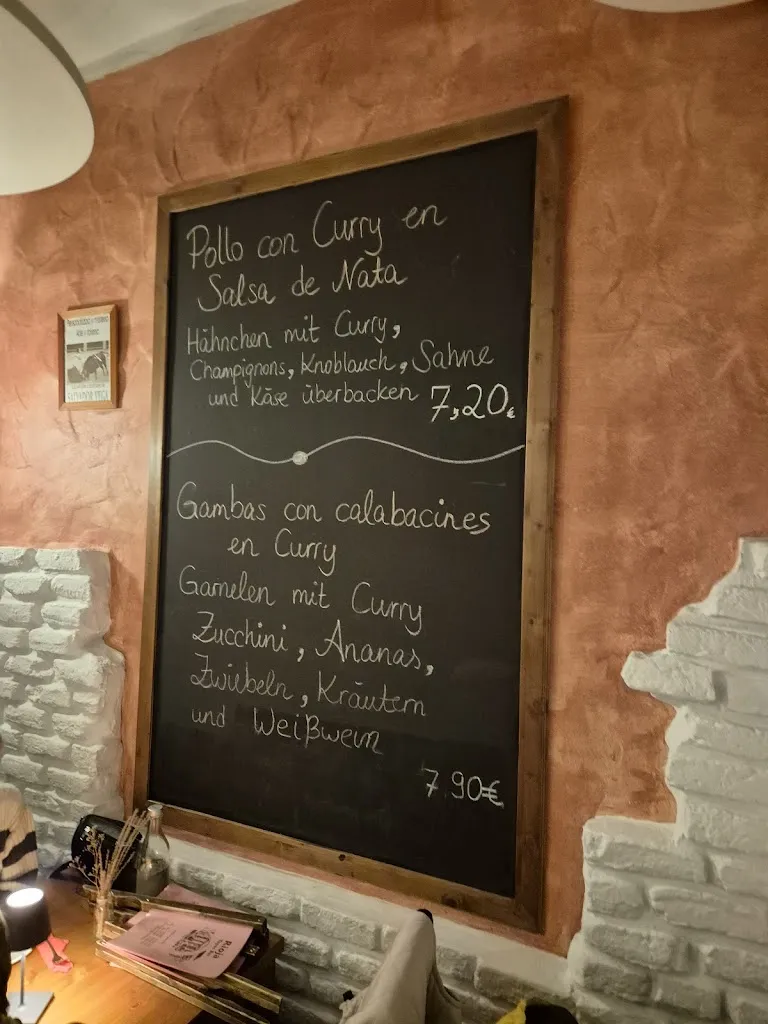 Pollo con Curry en
Salsa de Nata
Hähnchen mit Curry,
Champignons, Knoblauch, Sahne
und Käse überbacken 7,20€
Gambas con calabacines
en Curry
Garnelen mit Curry
Zucchini, Ananas,
Zwiebeln, Kräutern
und Weißwein
7.90€
SALVADOR VEGA
RIOJA